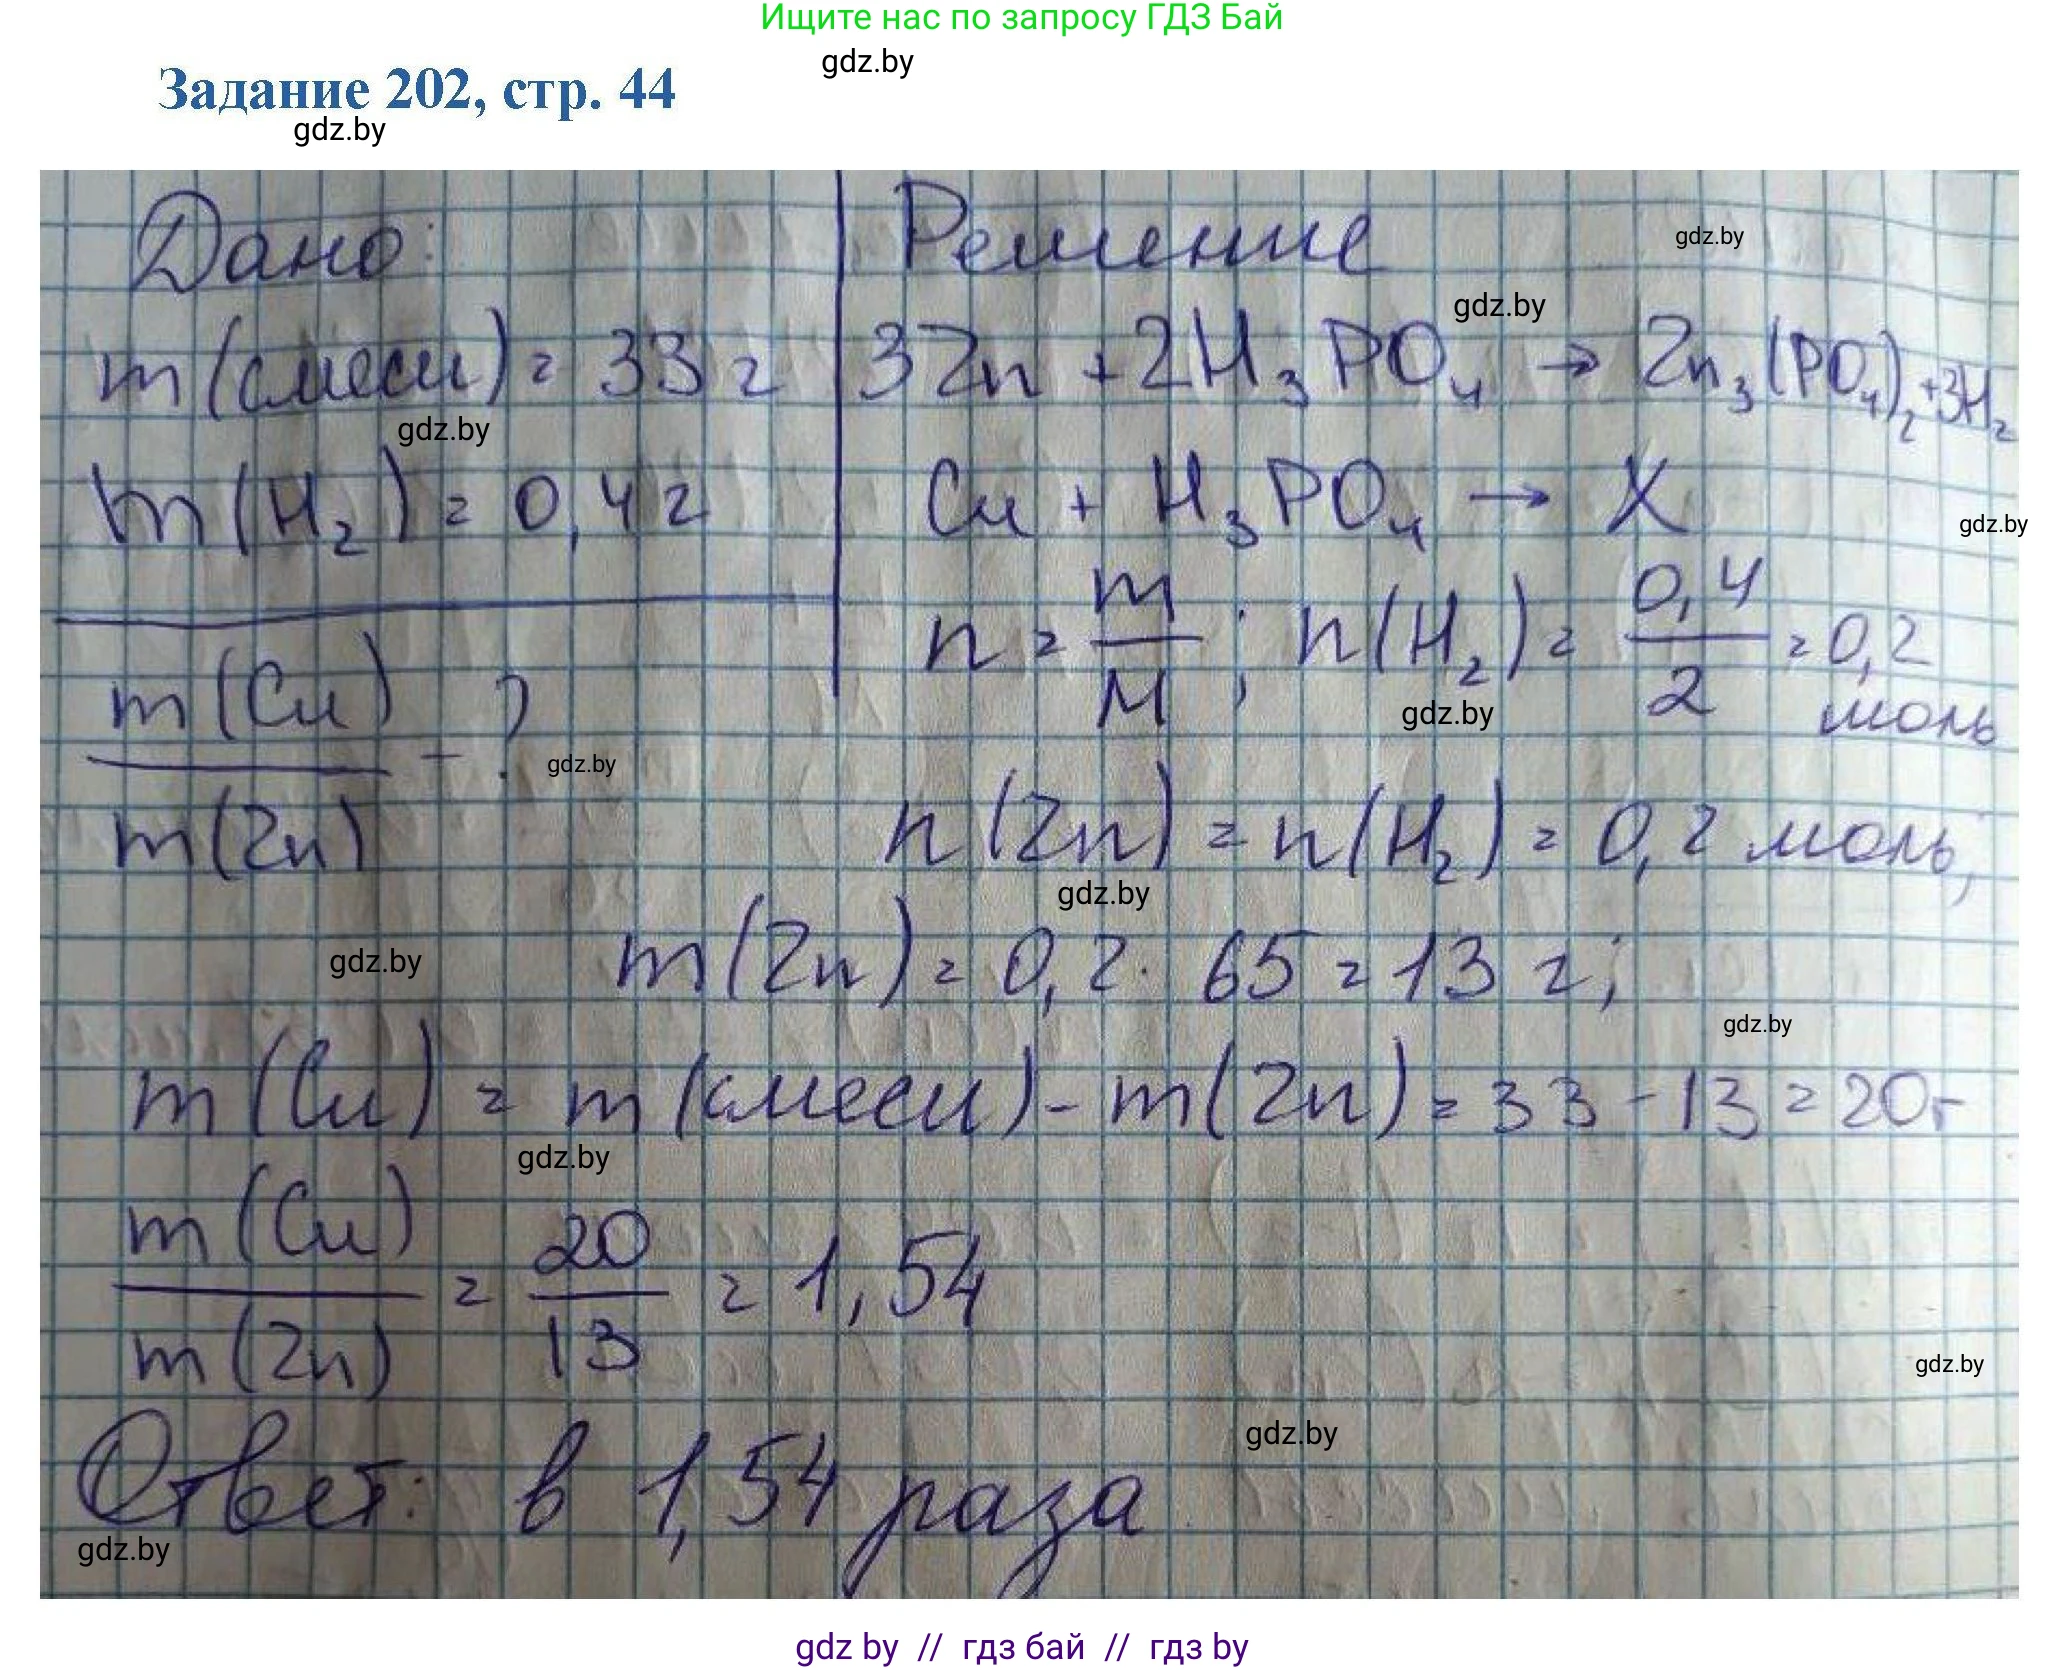 Ищите нас по запросу ГДЗ Бай
gdz.by
Задание 202, стр. 44
gdz.by
Дано:
Решение
gdz.by
gdz.by
m(смеси) = 33 г
3Zn + 2H₃PO₄ → Zn₃(PO₄)₂ + 3H₂
gdz.by
m(H₂) = 0,4 г
Cu + H₃PO₄ → X
gdz.by
n = m/M ; n(H₂) = 0,4/2 = 0,2 моль
gdz.by
m(Cu)/m(Zn) - ?
gdz.by
n(Zn) = n(H₂) = 0,2 моль;
gdz.by
gdz.by
m(Zn) = 0,2 · 65 = 13 г;
gdz.by
m(Cu) = m(смеси) - m(Zn) = 33 - 13 = 20г
gdz.by
m(Cu)/m(Zn) = 20/13 = 1,54
gdz.by
gdz.by
Ответ: в 1,54 раза
gdz.by
gdz by // гдз бай // гдз by